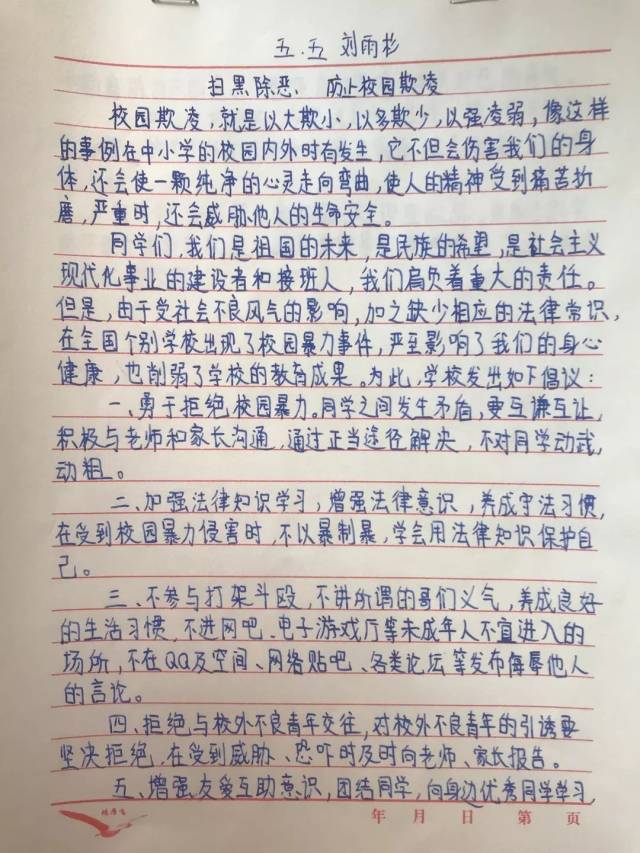 五.五 刘雨杉
扫黑除恶、防止校园欺凌
校园欺凌,就是以大欺小,以多欺少,以强凌弱,像这样
的事例在中小学的校园内外时有发生,它不但会伤害我们的身
体,还会使一颗纯净的心灵走向弯曲,使人的精神受到痛苦折
磨,严重时,还会威胁他人的生命安全。
同学们,我们是祖国的未来,是民族的希望,是社会主义
现代化事业的建设者和接班人,我们肩负着重大的责任。
但是,由于受社会不良风气的影响,加之缺少相应的法律常识,
在全国个别学校出现了校园暴力事件,严至影响了我们的身心
健康,也削弱了学校的教育成果。为此,学校发出如下倡议:
一、勇于拒绝校园暴力。同学之间发生矛盾,要互谦互让,
积极与老师和家长沟通,通过正当途径解决,不对同学动武,
动粗。
二、加强法律知识学习,增强法律意识,养成守法习惯,
在受到校园暴力侵害时,不以暴制暴,学会用法律知识保护自
己。
三、不参与打架斗殴,不讲所谓的哥们义气,养成良好
的生活习惯,不进网吧、电子游戏厅等未成年人不宜进入的
场所,不在QQ及空间、网络贴吧、各类论坛等发布侮辱他人
的言论。
四、拒绝与校外不良青年交往,对校外不良青年的引诱要
坚决拒绝,在受到威胁、恐吓时及时向老师、家长报告。
五、增强友爱互助意识,团结同学,向身边优秀同学学习,
年 月 日 第 页